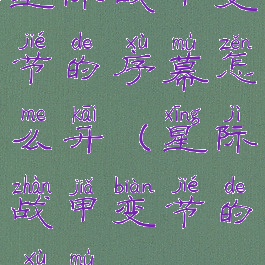 际 变
jié de xù mù zěn
节的序幕怎
me kāi xīng jì
么开（星际
zhàn jiǎ biàn jié de
战甲变节的
xù mù